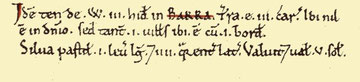 Idē ten de . W . III . hiđ in BARRA . Tra . ē . III . car̃ . Ibi nił
ē in dn̄io . sed tant̄ . I . uilts ibi . ē cū . I . borđ .
Silua past̄ił . I . leū lg̃ . 7 III . q̄rent̄ lat̄ . Valuit 7 ual̃ . V . sol̃ .